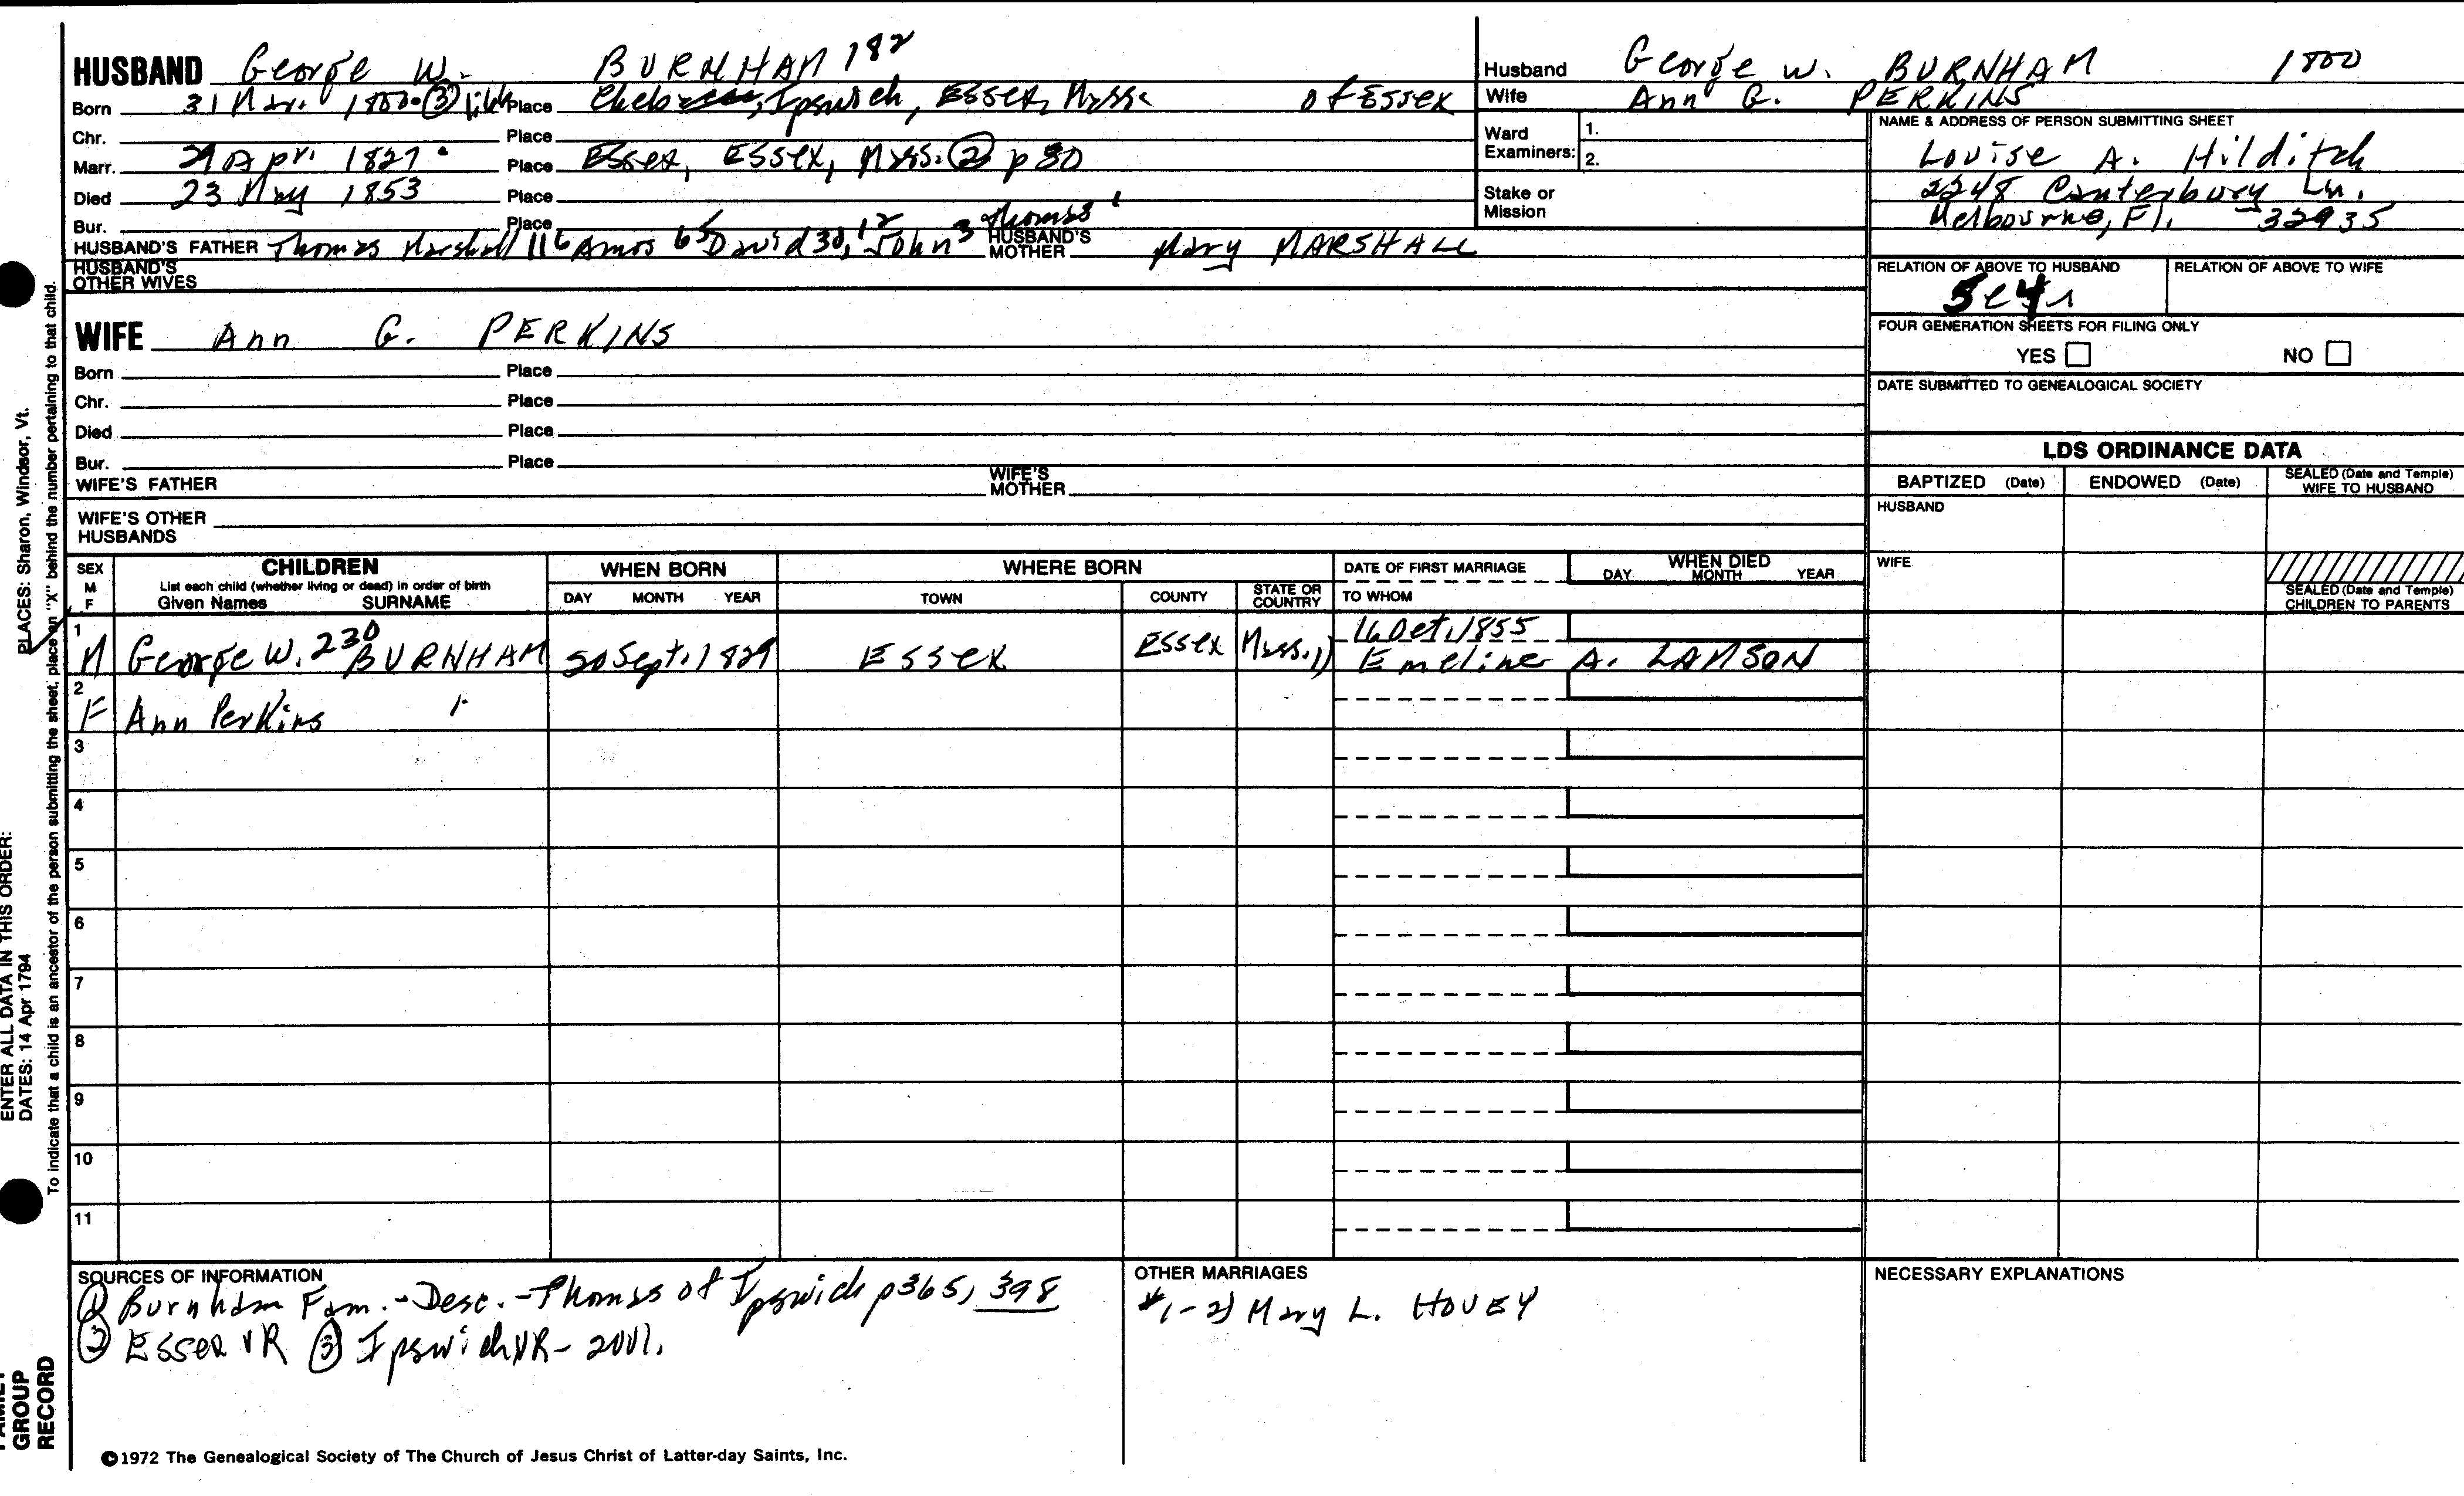 HUSBAND George W. BURNHAM 182
Born 31 Mar. 1800 ③ Place Ipswich, Essex, Mass. of Essex
Chr. Place
Marr. 29 Apr. 1827 Place Essex, Essex, Mass. ② p 80
Died 23 May 1853 Place
Bur. Place
HUSBAND'S FATHER Thomas Marshall 116 Amos 65 David 30, 12 John 3 Thomas 1 HUSBAND'S MOTHER Mary MARSHALL
HUSBAND'S OTHER WIVES
WIFE Ann G. PERKINS
Born Place
Chr. Place
Died Place
Bur. Place
WIFE'S FATHER WIFE'S MOTHER
WIFE'S OTHER HUSBANDS
Husband George W. BURNHAM 1800
Wife Ann G. PERKINS
Ward Examiners: 1.
2.
Stake or Mission
NAME & ADDRESS OF PERSON SUBMITTING SHEET
Louise A. Hilditch
2248 Canterbury Ln.
Melbourne, Fl. 32935
RELATION OF ABOVE TO HUSBAND RELATION OF ABOVE TO WIFE
5c4r
FOUR GENERATION SHEETS FOR FILING ONLY
YES NO
DATE SUBMITTED TO GENEALOGICAL SOCIETY
LDS ORDINANCE DATA
BAPTIZED (Date) ENDOWED (Date) SEALED (Date and Temple) WIFE TO HUSBAND
HUSBAND
WIFE
SEALED (Date and Temple) CHILDREN TO PARENTS
SEX M F
CHILDREN
List each child (whether living or dead) in order of birth
Given Names SURNAME
WHEN BORN
DAY MONTH YEAR
WHERE BORN
TOWN COUNTY STATE OR COUNTRY
DATE OF FIRST MARRIAGE
TO WHOM
WHEN DIED
DAY MONTH YEAR
1 M George W. 230 BURNHAM Sept. 1829 Essex Essex Mass. 16 Oct. 1855
Emeline A. LAMSON
2 F Ann Perkins
3
4
5
6
7
8
9
10
11
SOURCES OF INFORMATION
① Burnham Fam. - Desc. - Thomas of Ipswich p365, 398
② Essex VR ③ Ipswich VR - 2001.
OTHER MARRIAGES
#1-2) Mary L. HOVEY
NECESSARY EXPLANATIONS
©1972 The Genealogical Society of The Church of Jesus Christ of Latter-day Saints, Inc.
ENTER ALL DATA IN THIS ORDER:
DATES: 14 Apr 1794 PLACES: Sharon, Windsor, Vt.
To indicate that a child is an ancestor of the person submitting the sheet, place an "X" behind the number pertaining to that child.
FAMILY
GROUP
RECORD